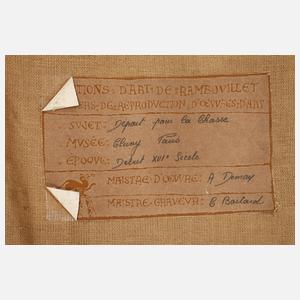 TIONS: D'ART: DE: RAMBOUILLET
RS: DE: REPRODUCTION D'ŒUVRES: D'ART
SUJET: Départ pour la Chasse
MUSÉE: Cluny Paris
EPOQUE: Début XVIe Siècle
MAISTRE-D'ŒUVRE: A Demay
MAISTRE-GRAVEUR: